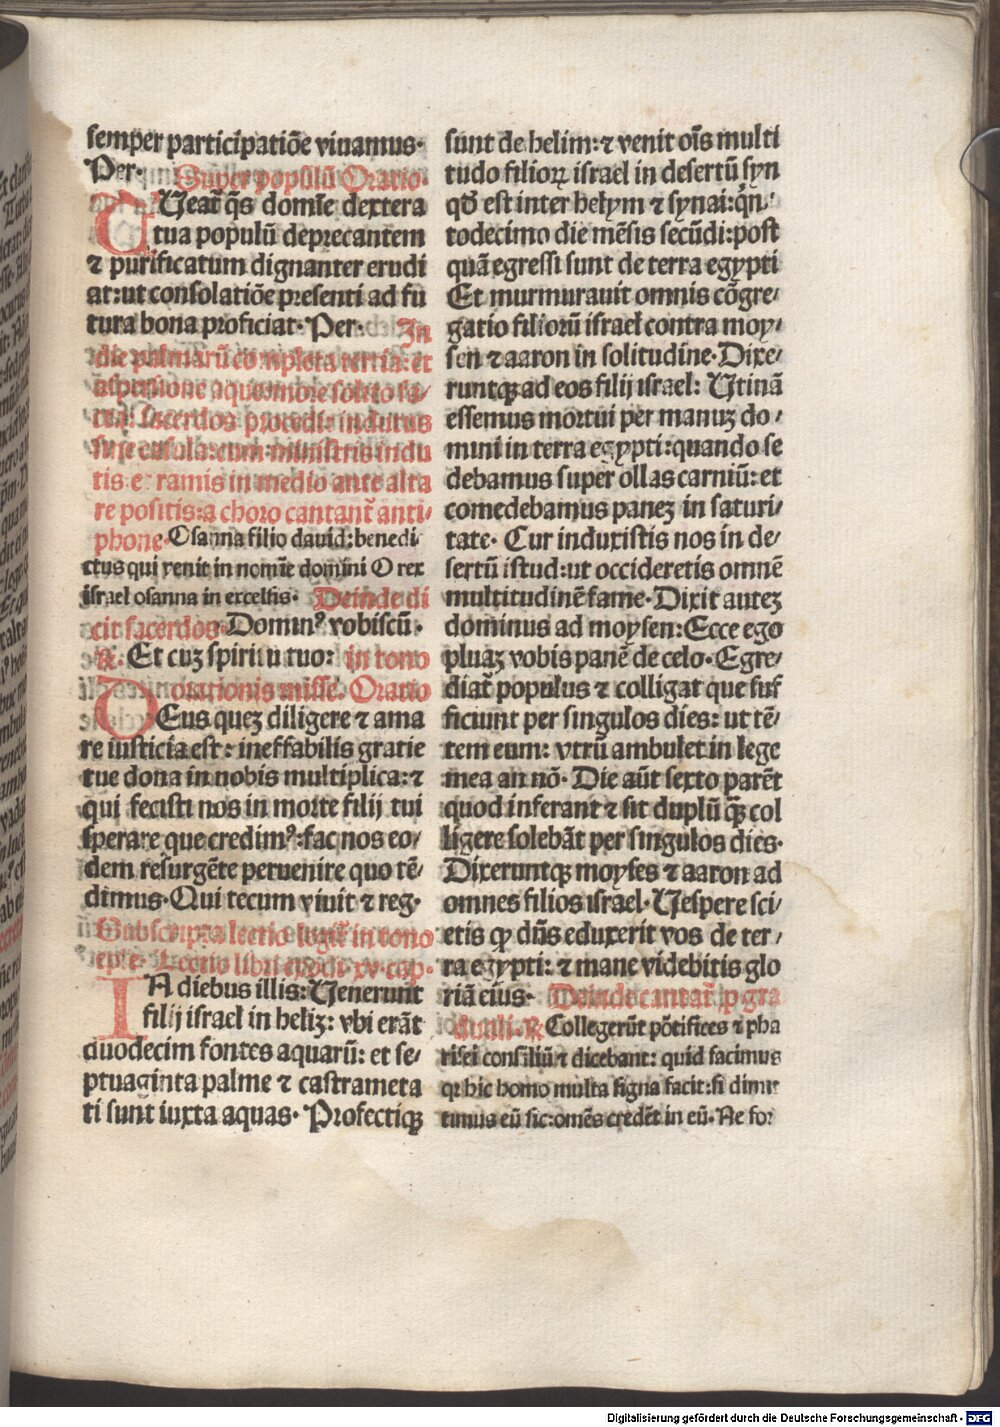 semper participatiōe viuamus·
Per· Super populū Oratio·
TUeat᷑ q̄s domīe dextera
tua populū deprecantem
⁊ purificatum dignanter erudi
at:ut consolatiōe presenti ad fu
tura bona proficiat· Per· In
die palmarū completa tertia: et
aspersione aque more solito fa⸗
cta: sacerdos procedit indutus
sine casula: cum ministris indu
tis et ramis in medio ante alta
re positis:a choro cantant᷑ anti⸗
phone· Osanna filio dauid:benedi
ctus qui venit in nomīe domini O rex
israel osanna in excelsis· Deinde di
cit sacerdos· Dominꝰ vobiscū·
℟· Et cuꝫ spiritu tuo: in tono
orationis misse· Oratio
DEus queꝫ diligere ⁊ ama
re iusticia est: ineffabilis gratie
tue dona in nobis multiplica: ⁊
qui fecisti nos in morte filij tui
sperare que credimꝰ:fac nos eo⸗
dem resurgēte peruenire quo tē⸗
dimus· Qui tecum viuit ⁊ reg·
Subscripta lectio legit᷑ in tono
ep̄le· Lectio libri exodi· xv· cap·
IN diebus illis: Uenerunt
filij israel in heliꝫ: vbi erāt
duodecim fontes aquarū: et se⸗
ptuaginta palme ⁊ castrameta
ti sunt iuxta aquas· Profectiqꝫ
sunt de helim: ⁊ venit oīs multi
tudo filioꝝ israel in desertū syn
qd̄ est inter helym ⁊ synai: q̇n⸗
todecimo die mēsis secūdi: post
quā egressi sunt de terra egypti
Et murmurauit omnis cōgre⸗
gatio filiorū israel contra moy⸗
sen ⁊ aaron in solitudine· Dixe⸗
runtqꝫ ad eos filij israel: Utinā
essemus mortui per manuꝫ do⸗
mini in terra egypti:quando se
debamus super ollas carniū: et
comedebamus paneꝫ in saturi⸗
tate· Cur induxistis nos in de⸗
sertū istud:ut occideretis omnē
multitudinē fame· Dixit auteꝫ
dominus ad moysen: Ecce ego
pluaꝫ vobis panē de celo· Egre⸗
diat᷑ populus ⁊ colligat que suf
ficiunt per singulos dies: ut tē⸗
tem eum: vtrū ambulet in lege
mea an nō· Die aūt sexto parēt
quod inferant ⁊ sit duplū q̄ꝫ col
ligere solebāt per singulos dies·
Dixeruntqꝫ moyses ⁊ aaron ad
omnes filios israel· Uespere sci⸗
etis ꝙ dn̄s eduxerit vos de ter⸗
ra egypti: ⁊ mane videbitis glo
riā eius· Deinde cantat᷑ ꝓ gra
duali· ℟ Collegerūt pōtifices ⁊ pha
risei consiliū ⁊ dicebant: quid facimus
qꝛ hic homo multa signa facit: si dimit
timus eū sic:omēs credēt in eū· Ne for⸗
Digitalisierung gefördert durch die Deutsche Forschungsgemeinschaft - DFG